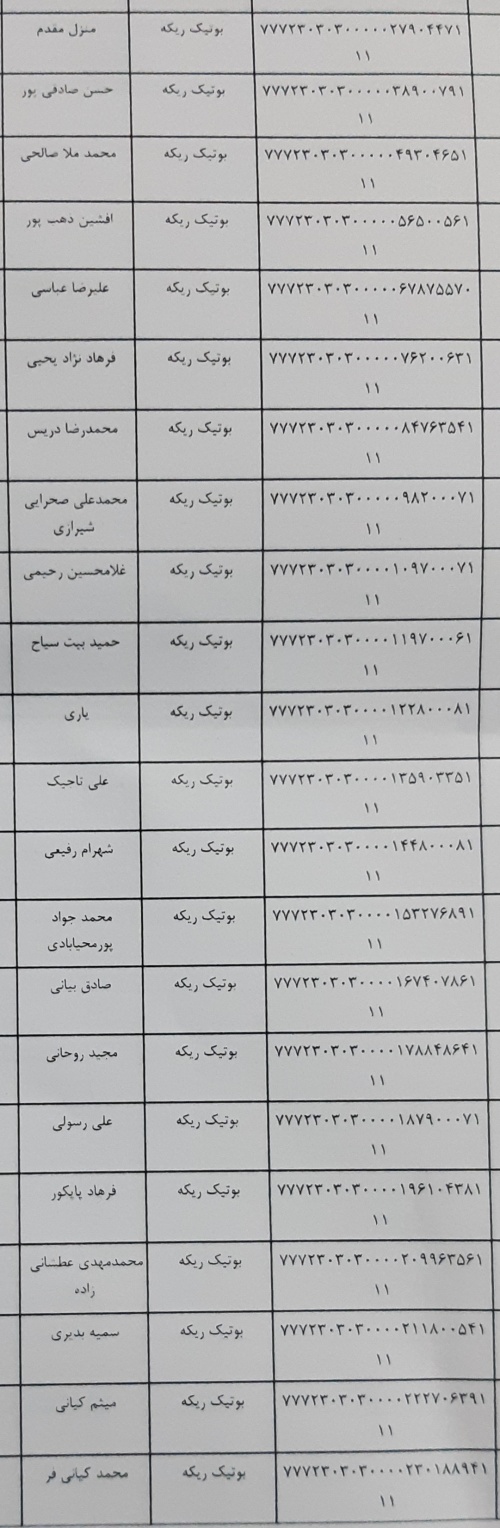 ۷۷۷۲۳۰۳۰۳۰۰۰۰۰۲۷۹۰۴۴۷۱ بوتیک ریکه منزل مقدم
۱۱
۷۷۷۲۳۰۳۰۳۰۰۰۰۰۳۸۹۰۰۷۹۱ بوتیک ریکه حسن صادقی پور
۱۱
۷۷۷۲۳۰۳۰۳۰۰۰۰۰۴۹۳۰۴۶۵۱ بوتیک ریکه محمد ملا صالحی
۱۱
۷۷۷۲۳۰۳۰۳۰۰۰۰۰۵۶۵۰۰۵۶۱ بوتیک ریکه افشین ذهب پور
۱۱
۷۷۷۲۳۰۳۰۳۰۰۰۰۰۶۷۸۷۵۵۷۰ بوتیک ریکه علیرضا عباسی
۱۱
۷۷۷۲۳۰۳۰۳۰۰۰۰۰۷۶۲۰۰۶۳۱ بوتیک ریکه فرهاد نژاد یحیی
۱۱
۷۷۷۲۳۰۳۰۳۰۰۰۰۰۸۴۷۶۳۵۴۱ بوتیک ریکه محمدرضا دریس
۱۱
۷۷۷۲۳۰۳۰۳۰۰۰۰۰۹۸۲۰۰۰۷۱ بوتیک ریکه محمدعلی صحرایی
۱۱ شیرازی
۷۷۷۲۳۰۳۰۳۰۰۰۰۱۰۹۷۰۰۰۷۱ بوتیک ریکه غلامحسین رحیمی
۱۱
۷۷۷۲۳۰۳۰۳۰۰۰۰۱۱۹۷۰۰۰۶۱ بوتیک ریکه حمید بیت سیاح
۱۱
۷۷۷۲۳۰۳۰۳۰۰۰۰۱۲۲۸۰۰۰۸۱ بوتیک ریکه یاری
۱۱
۷۷۷۲۳۰۳۰۳۰۰۰۰۱۳۵۹۰۳۳۵۱ بوتیک ریکه علی تاجیک
۱۱
۷۷۷۲۳۰۳۰۳۰۰۰۰۱۴۴۸۰۰۰۸۱ بوتیک ریکه شهرام رفیعی
۱۱
۷۷۷۲۳۰۳۰۳۰۰۰۰۱۵۳۲۷۶۸۹۱ بوتیک ریکه محمد جواد
۱۱ پورمحیابادی
۷۷۷۲۳۰۳۰۳۰۰۰۰۱۶۷۴۰۷۸۶۱ بوتیک ریکه صادق بیانی
۱۱
۷۷۷۲۳۰۳۰۳۰۰۰۰۱۷۸۸۴۸۶۴۱ بوتیک ریکه مجید روحانی
۱۱
۷۷۷۲۳۰۳۰۳۰۰۰۰۱۸۷۹۰۰۰۷۱ بوتیک ریکه علی رسولی
۱۱
۷۷۷۲۳۰۳۰۳۰۰۰۰۱۹۶۱۰۴۳۸۱ بوتیک ریکه فرهاد پاپکور
۱۱
۷۷۷۲۳۰۳۰۳۰۰۰۰۲۰۹۹۶۳۵۶۱ بوتیک ریکه محمدمهدی عطشانی
۱۱ زاده
۷۷۷۲۳۰۳۰۳۰۰۰۰۲۱۱۸۰۰۵۴۱ بوتیک ریکه سمیه بدیری
۱۱
۷۷۷۲۳۰۳۰۳۰۰۰۰۲۲۲۷۰۶۳۹۱ بوتیک ریکه میثم کیانی
۱۱
۷۷۷۲۳۰۳۰۳۰۰۰۰۲۳۰۱۸۸۹۴۱ بوتیک ریکه محمد کیانی فر
۱۱